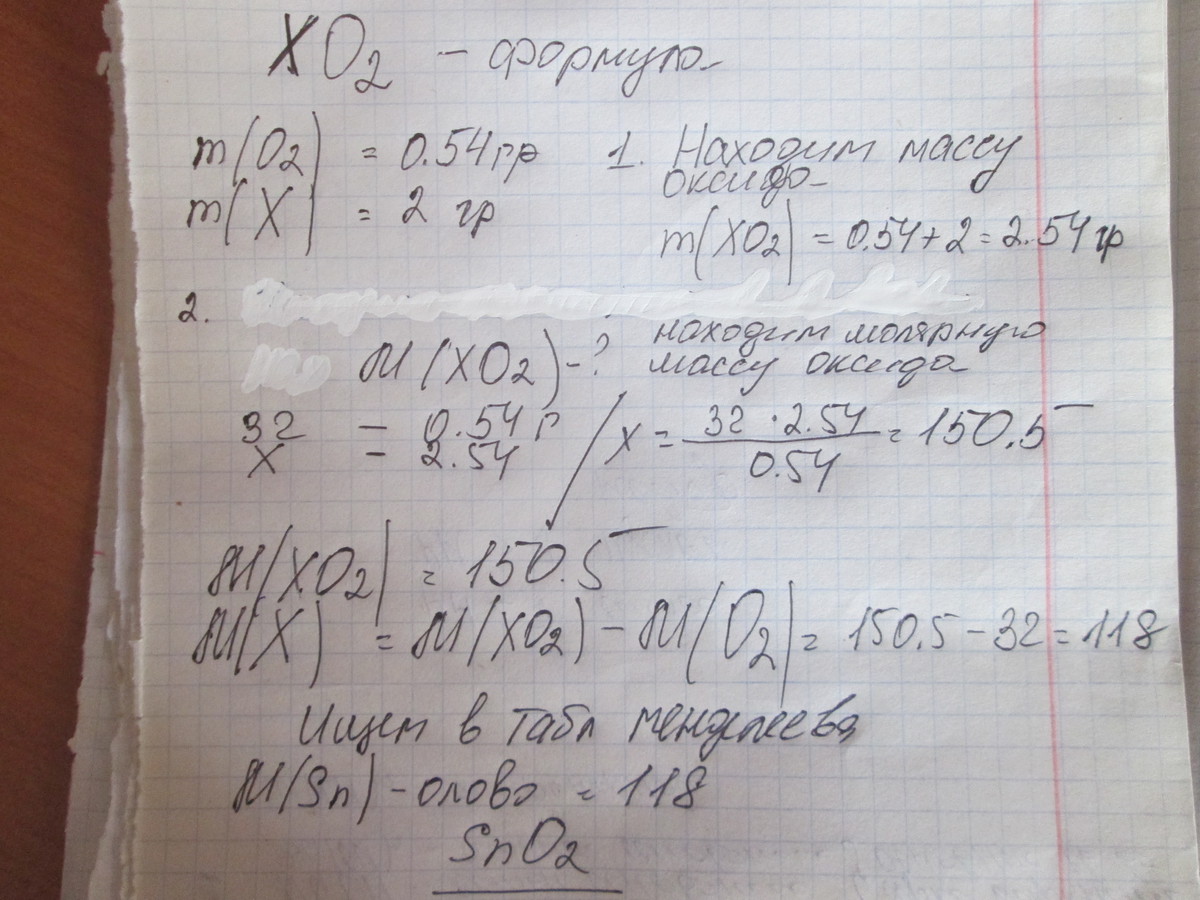 XO₂ – формула
m(O₂) = 0.54 гр
m(X) = 2 гр
1. Находим массу
оксида
m(XO₂) = 0.54 + 2 = 2.54 гр
2.
M(XO₂) – ?
находим молярную
массу оксида
32 – 0.54 г
X – 2.54
x = (32 · 2.54) / 0.54 = 150.5
M(XO₂) = 150.5
M(X) = M(XO₂) – M(O₂) = 150.5 – 32 = 118
Ищем в табл менделеева
M(Sn) – олово = 118
SnO₂